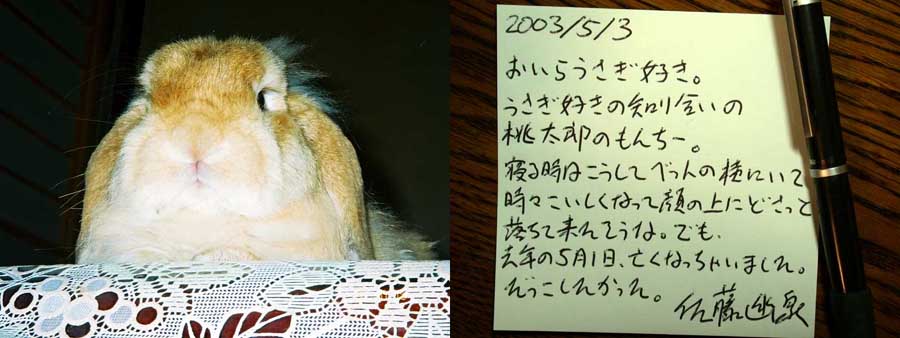 2003/5/3
おいらうさぎ好き。
うさぎ好きの知り合いの
桃太郎のもんちー。
寝る時はこうしてべっんの横にいて
時々こいしくなって顔の上にどさっと
落ちて来んそうな。でも、
去年の5月1日、亡くなっちゃいました。
だっこしたかった。
佐藤